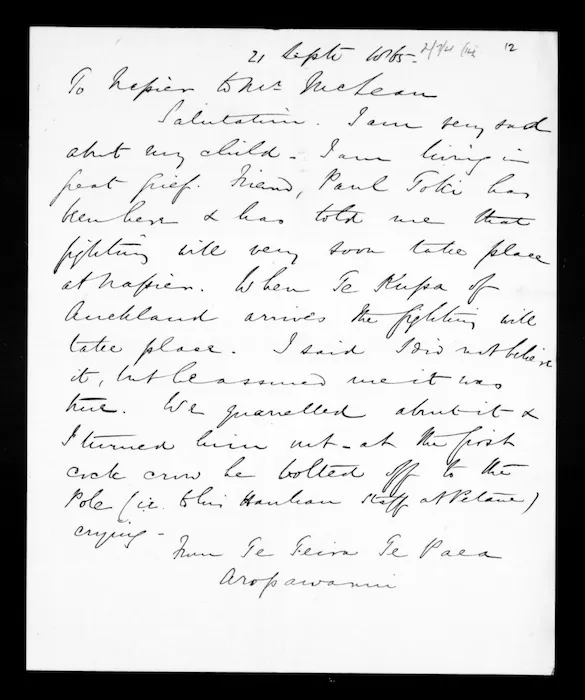 21 Septr 1865.
12
To Napier to Mr McLean
Salutation. I am very sad
abut my child - I am living in
great grief. Friend, Paul Toki has
been here & has told me that
fighting will very soon take place
at Napier. When Te Kupa of
Auckland arrives the fighting will
take place. I said I did not believe
it, but he assured me it was
true. We quarrelled about it &
I turned him out - at the first
cock crow he bolted off to the
Pole (i.e. to his Hauhau staff at Petane)
crying -
From Te Teira Te Paea
Aropawanui